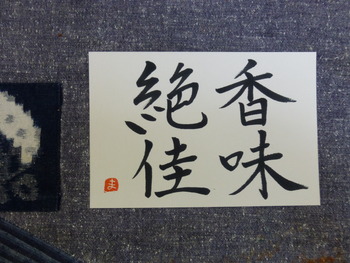 香味
絶佳
ま